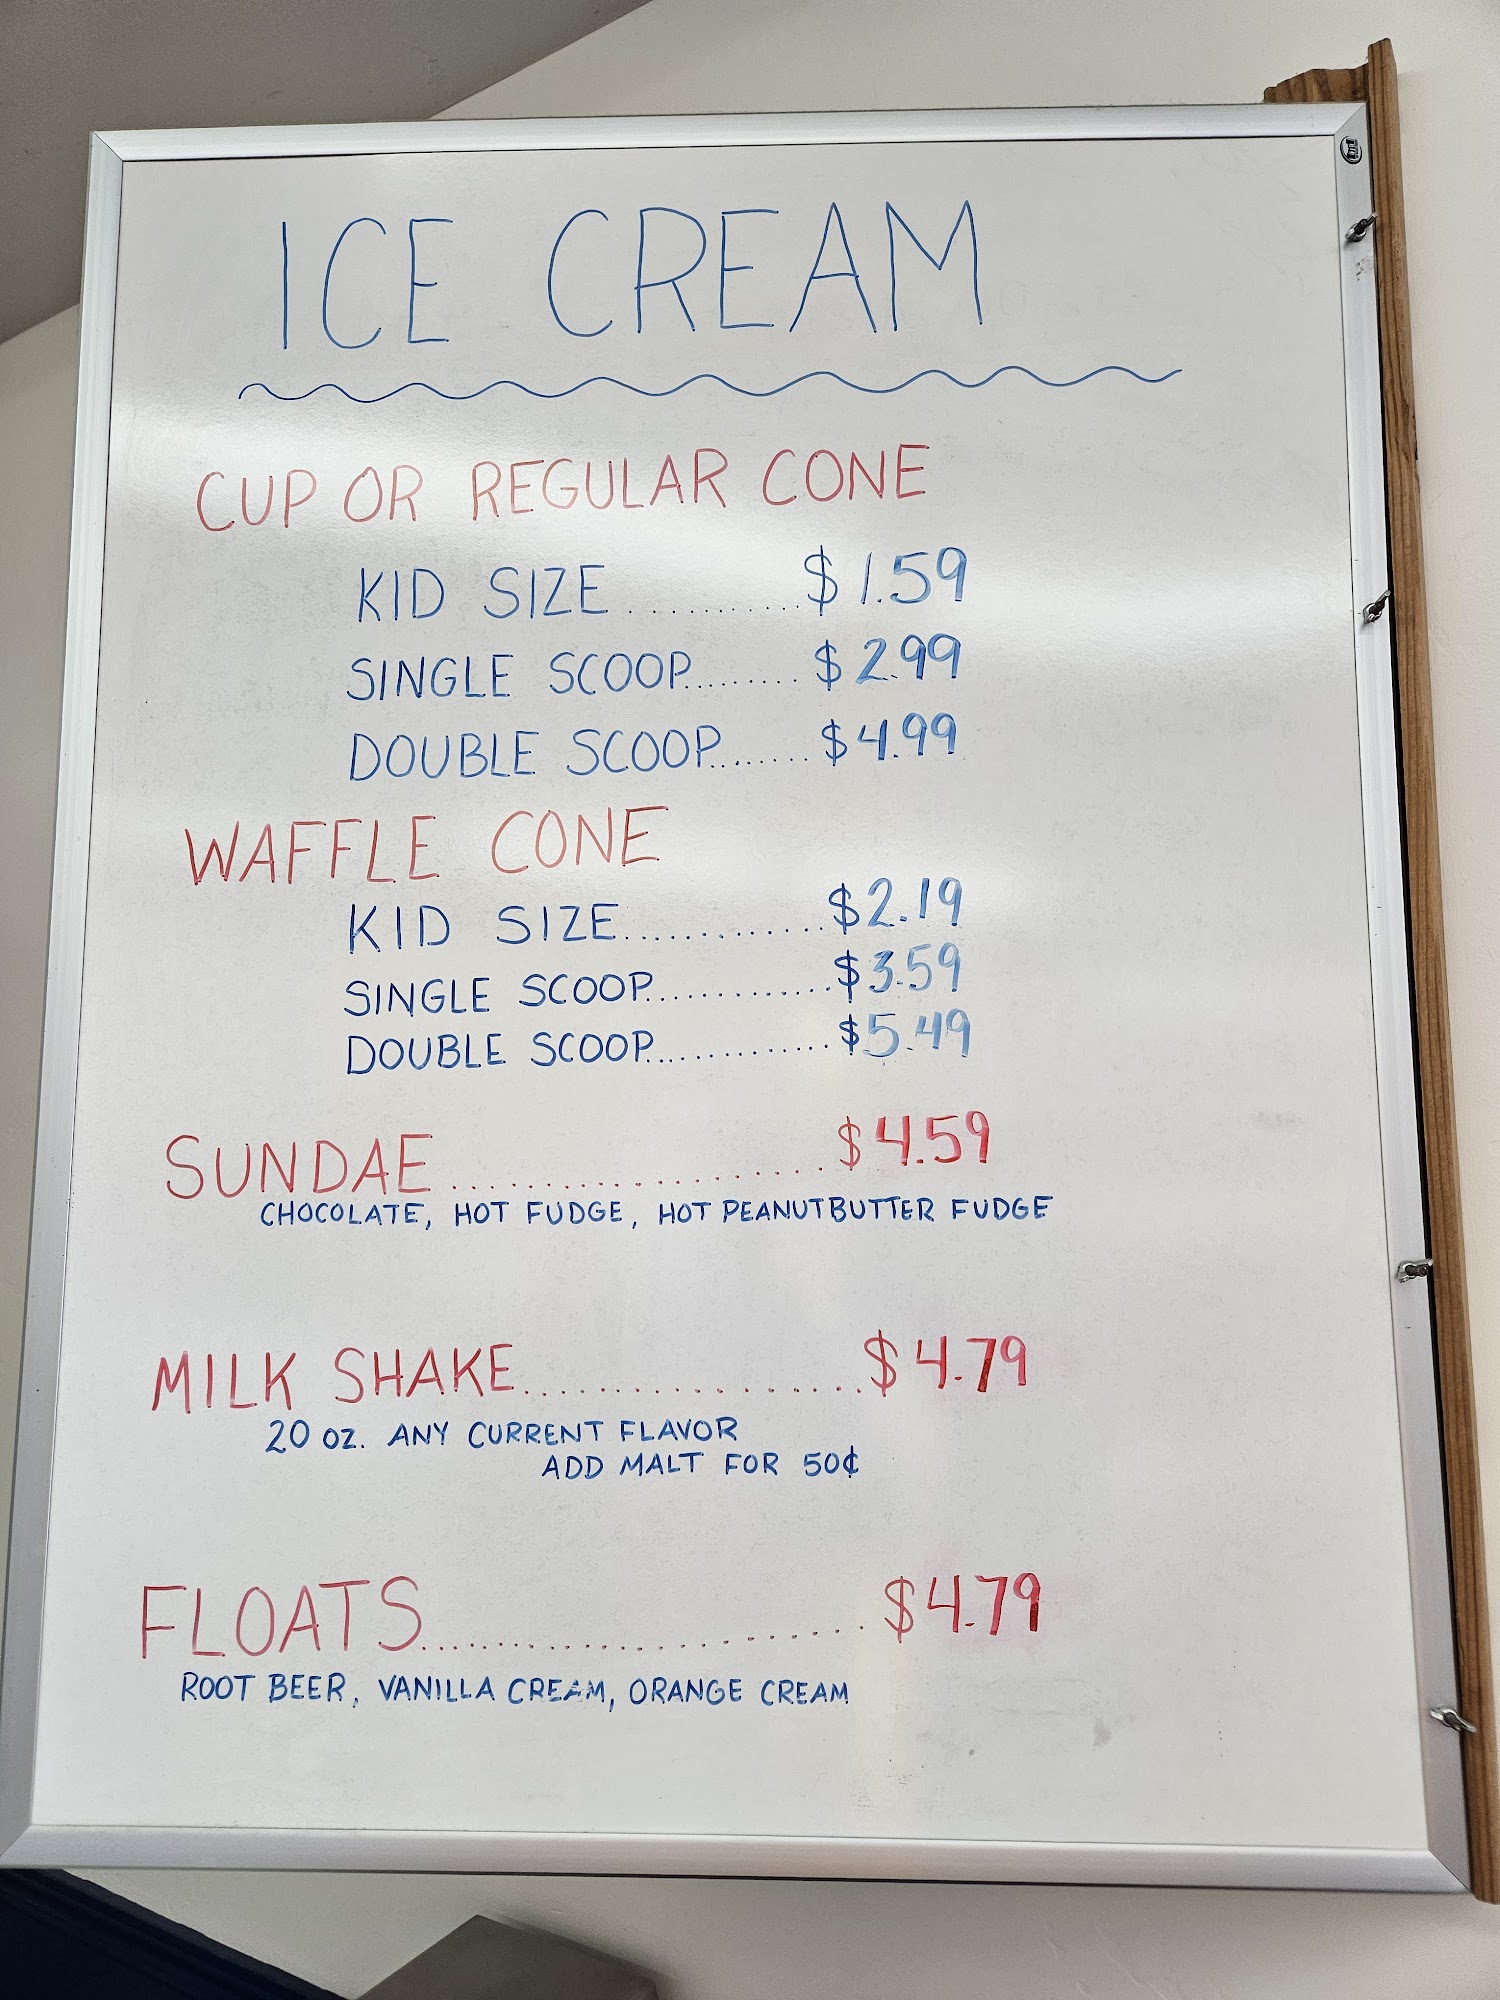 ICE CREAM
CUP OR REGULAR CONE
KID SIZE ............ $1.59
SINGLE SCOOP ........ $2.99
DOUBLE SCOOP ........ $4.99
WAFFLE CONE
KID SIZE ............. $2.19
SINGLE SCOOP ............. $3.59
DOUBLE SCOOP ............. $5.49
SUNDAE .................... $4.59
CHOCOLATE, HOT FUDGE, HOT PEANUTBUTTER FUDGE
MILK SHAKE .................. $4.79
20 OZ. ANY CURRENT FLAVOR
ADD MALT FOR 50¢
FLOATS ........................ $4.79
ROOT BEER, VANILLA CREAM, ORANGE CREAM